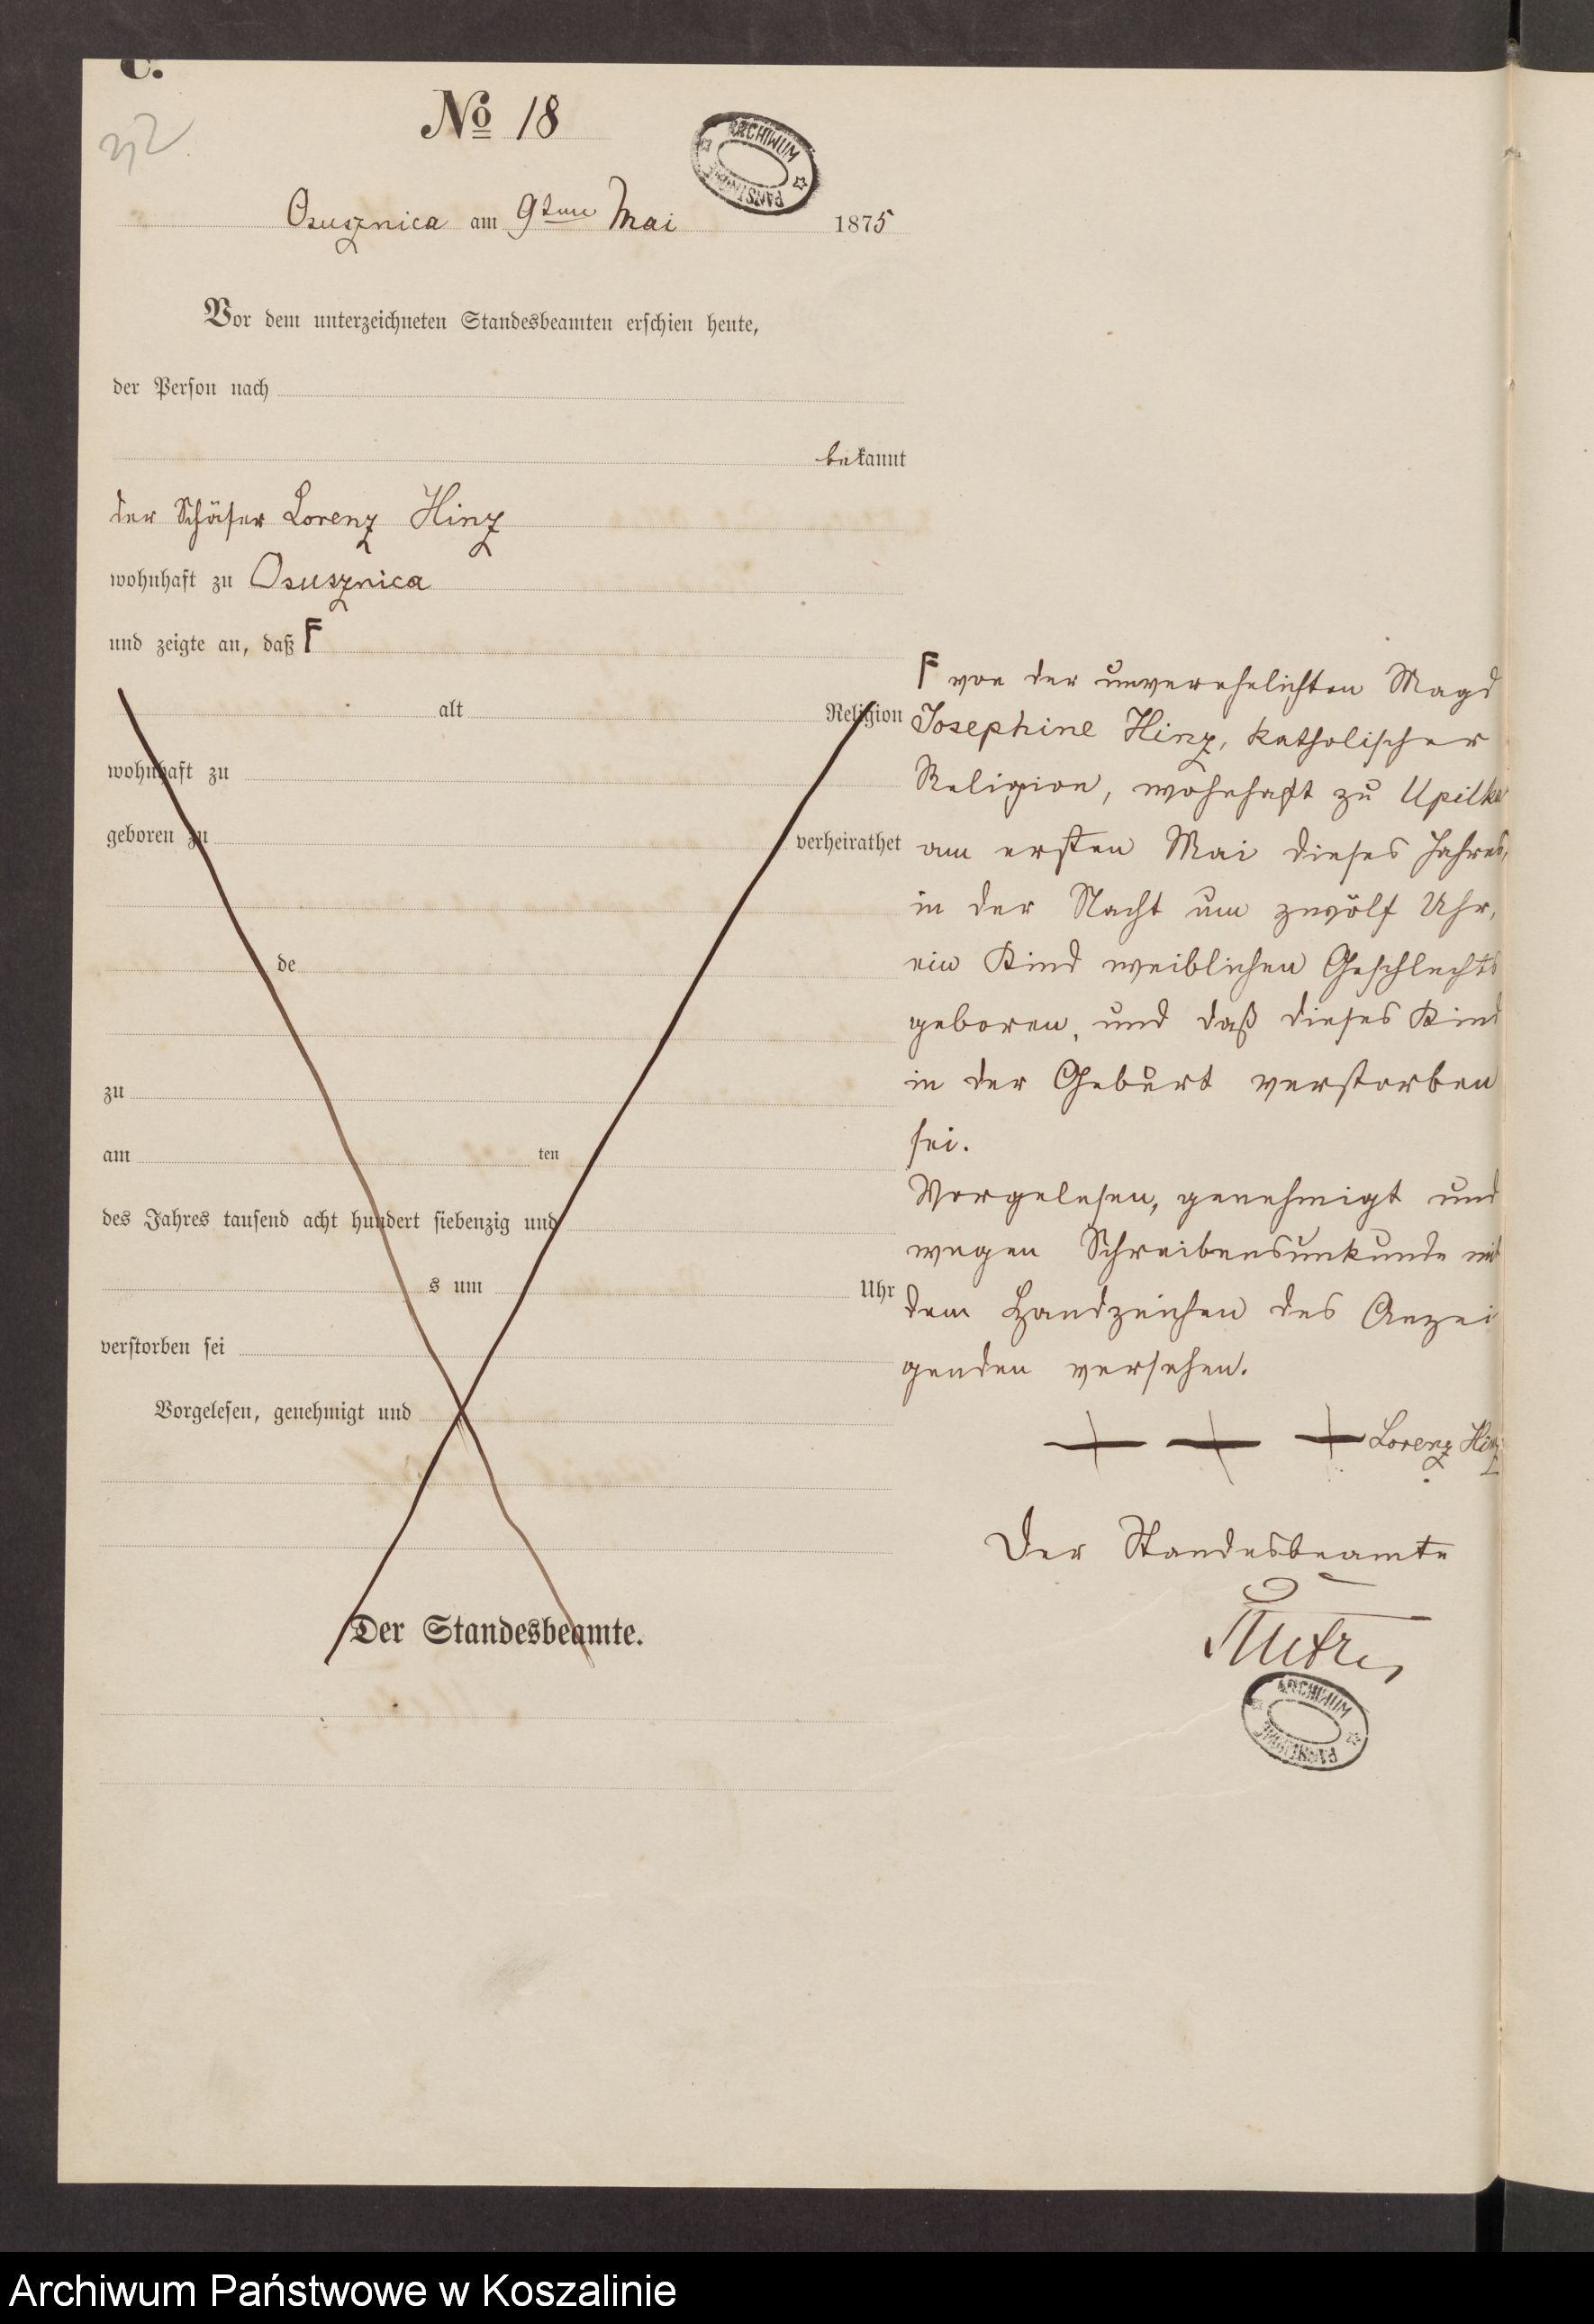 C.
32
No 18
ARCHIWUM PAŃSTWOWE
Osusznica am 9ten Mai 1875
Vor dem unterzeichneten Standesbeamten erschien heute,
der Person nach
bekannt
der Schäfer Lorenz Hinz
wohnhaft zu Osusznica
und zeigte an, daß F
alt Religion
wohnhaft zu
geboren zu verheirathet
de
zu
am ten
des Jahres tausend acht hundert siebenzig und
s um Uhr
verstorben sei
Vorgelesen, genehmigt und
Der Standesbeamte.
F von der unverehelichten Magd
Josephine Hinz, katholischer
Religion, wohnhaft zu Upilka
am ersten Mai dieses Jahres,
in der Nacht um zwölf Uhr,
ein Kind weiblichen Geschlechts
geboren, und daß dieses Kind
in der Geburt verstorben
sei.
Vorgelesen, genehmigt und
wegen Schreibensunkunde mit
dem Handzeichen des Anzei
genden versehen.
+ + + Lorenz Hinz
Der Standesbeamte
ARCHIWUM PAŃSTWOWE
Archiwum Państwowe w Koszalinie